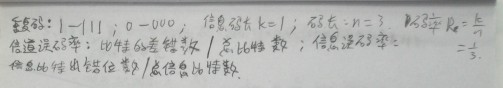 重复码：1—111；0—000；信息码长k=1；码长：n=3. 码率 Rc=k/n
信道误码率：比特的差错数/总比特数；信息误码率： =1/3.
信息比特出错位数/总信息比特数.